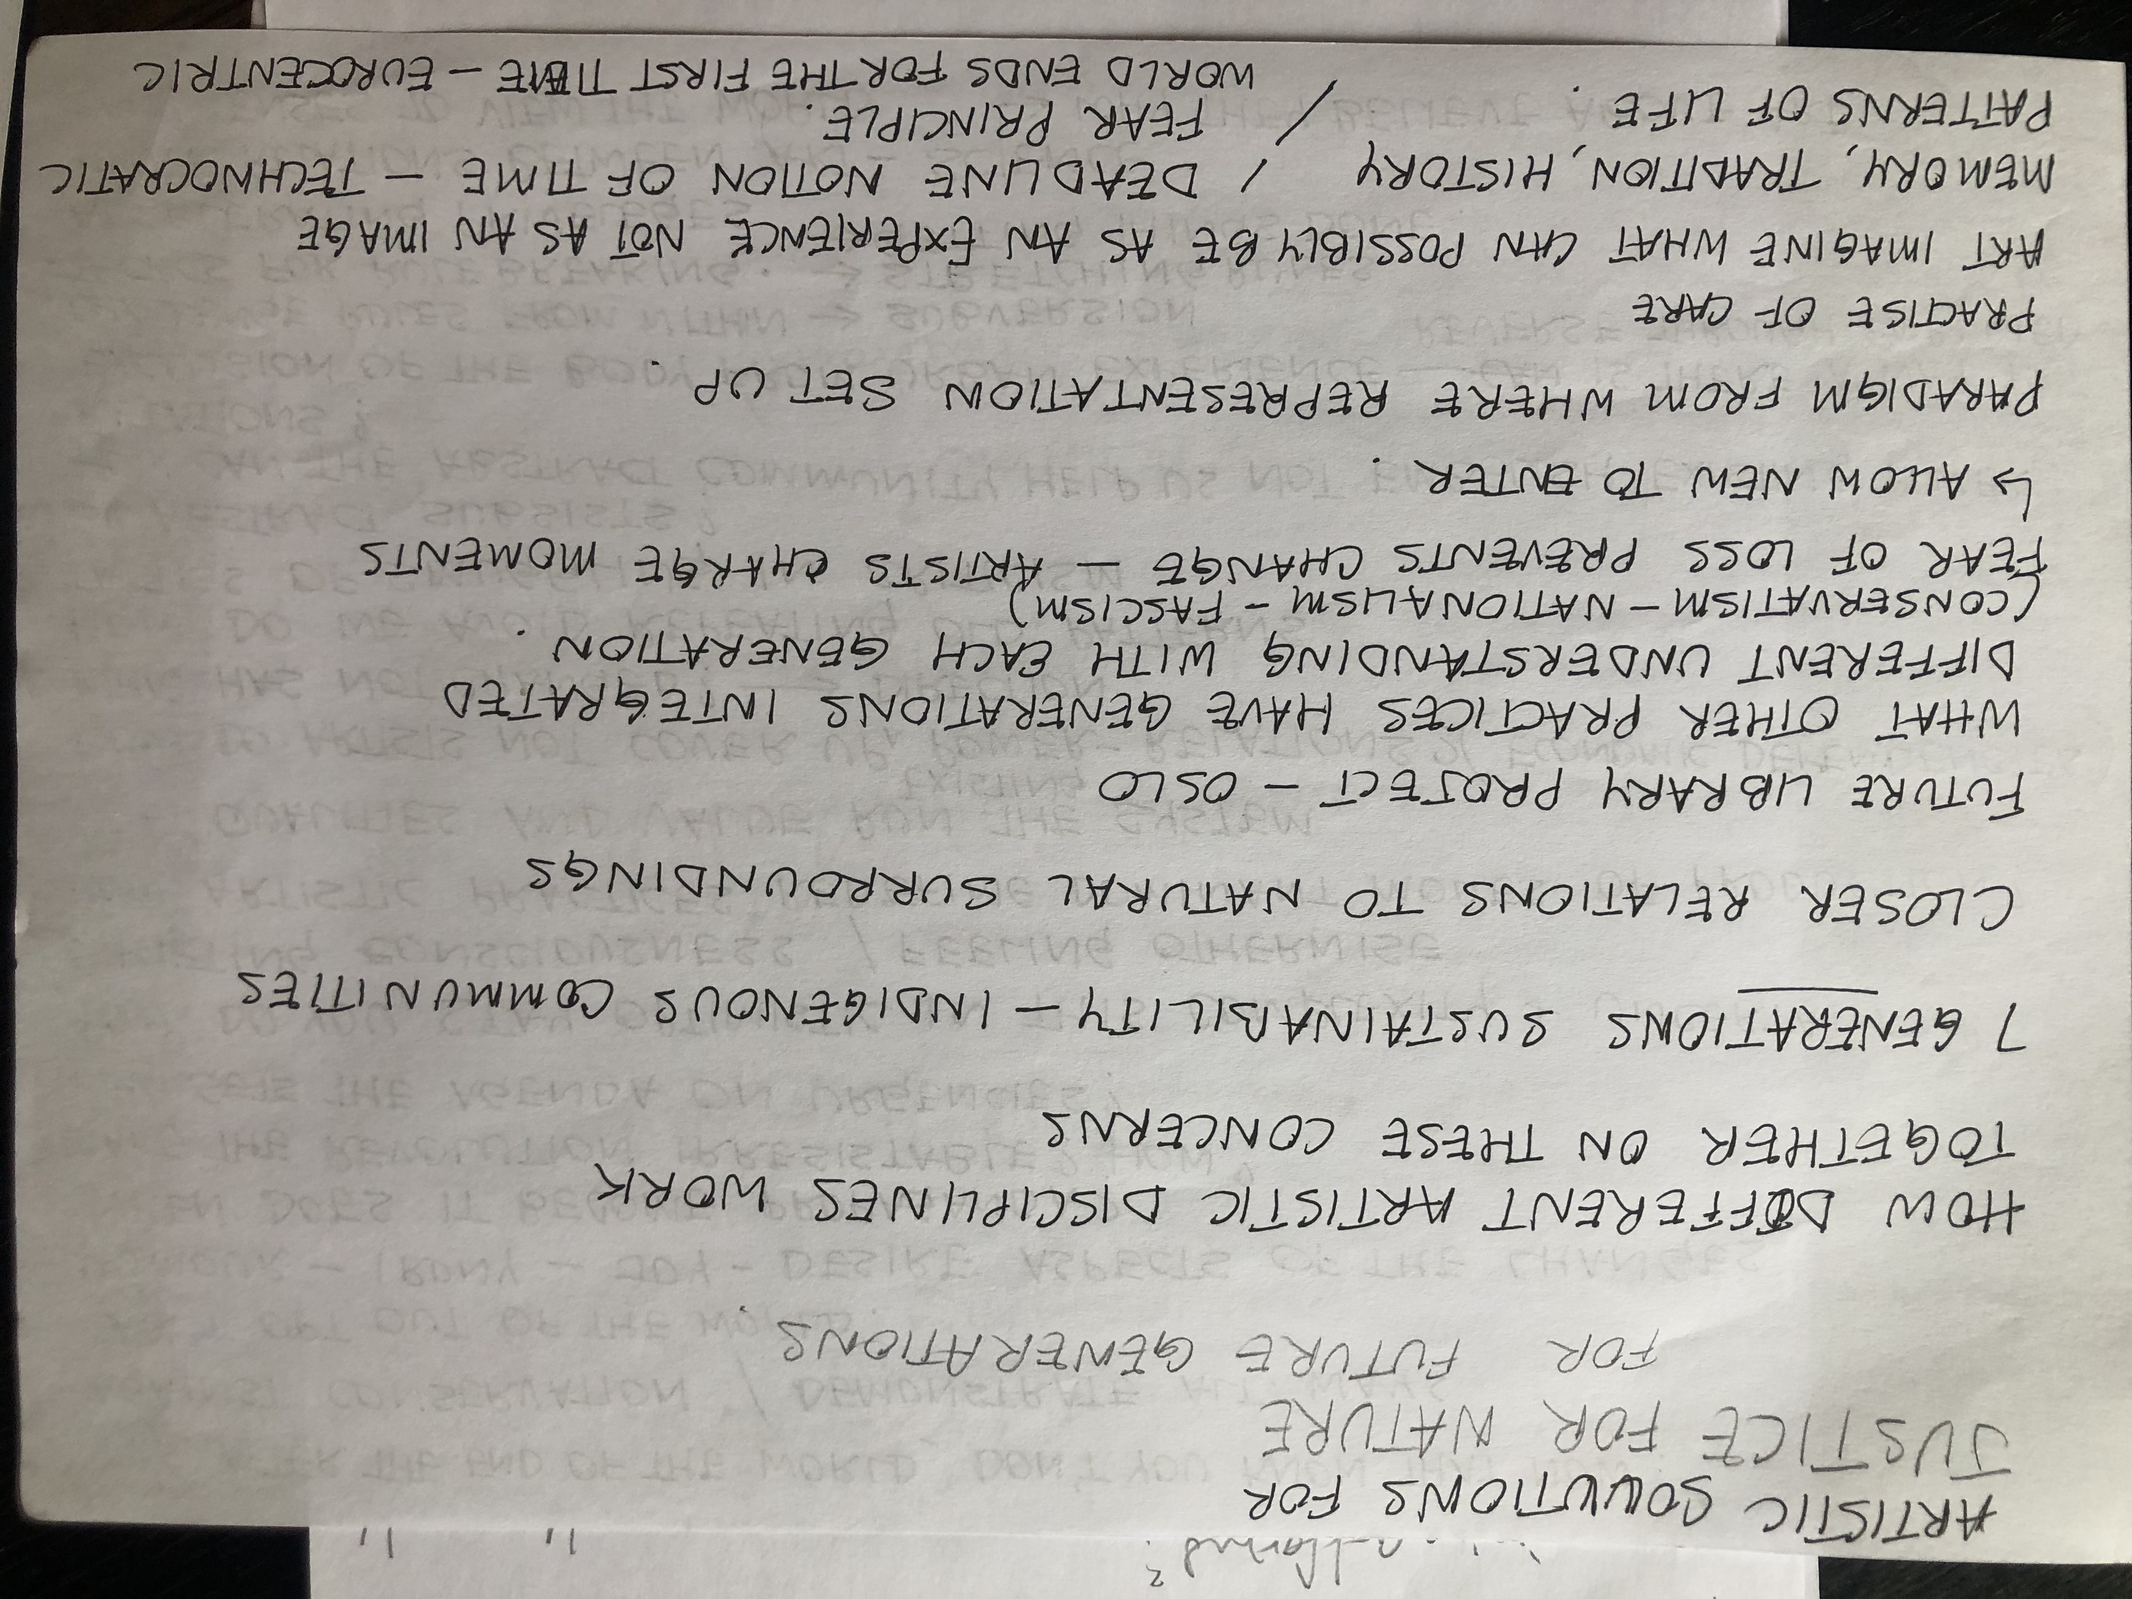 ARTISTIC SOLUTIONS FOR
JUSTICE FOR NATURE
FOR FUTURE GENERATIONS
HOW DIFFERENT ARTISTIC DISCIPLINES WORK
TOGETHER ON THESE CONCERNS
7 GENERATIONS SUSTAINABILITY – INDIGENOUS COMMUNITIES
CLOSER RELATIONS TO NATURAL SURROUNDINGS
FUTURE LIBRARY PROJECT – OSLO
WHAT OTHER PRACTICES HAVE GENERATIONS INTEGRATED
DIFFERENT UNDERSTANDING WITH EACH GENERATION.
(CONSERVATISM – NATIONALISM – FASCISM)
FEAR OF LOSS PREVENTS CHANGE – ARTISTS CHARGE MOMENTS
↳ ALLOW NEW TO ENTER.
PARADIGM FROM WHERE REPRESENTATION SET UP.
PRACTISE OF CARE
ART IMAGINE WHAT CAN POSSIBLY BE AS AN EXPERIENCE NOT AS AN IMAGE
MEMORY, TRADITION, HISTORY / DEADLINE NOTION OF TIME – TECHNOCRATIC
PATTERNS OF LIFE. / FEAR PRINCIPLE.
WORLD ENDS FOR THE FIRST TIME – EUROCENTRIC